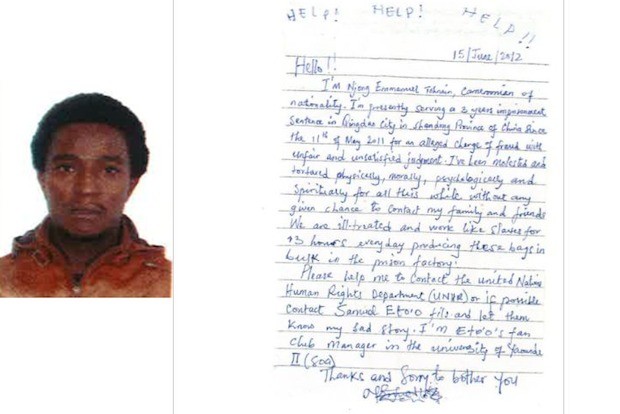 HELP! HELP! HELP!!
15/June/2012
Hello!!
I'm Njong Emmanuel Tohnain, Cameroonian of
nationality. I'm presently serving a 3 years imprisonment
sentence in Qingdao City in Shandong Province of China since
the 11th of May 2011 for an alleged charge of fraud with
unfair and unsatisfied judgment. I've been molested and
tortured physically, morally, psychologically and
spiritually for all this while without any
given chance to contact my family and friends
We are ill-treated and work like slaves for
13 hours everyday producing these bags in
bulk in the prison factory.
Please help me to contact the United Nations
Human Rights Department (UNHR) or if possible
contact Samuel Eto'o fils and let them
know my sad story. I'm Eto'o's fan
club manager in the university of Yaounde
II (SOA)
Thanks and Sorry to bother you